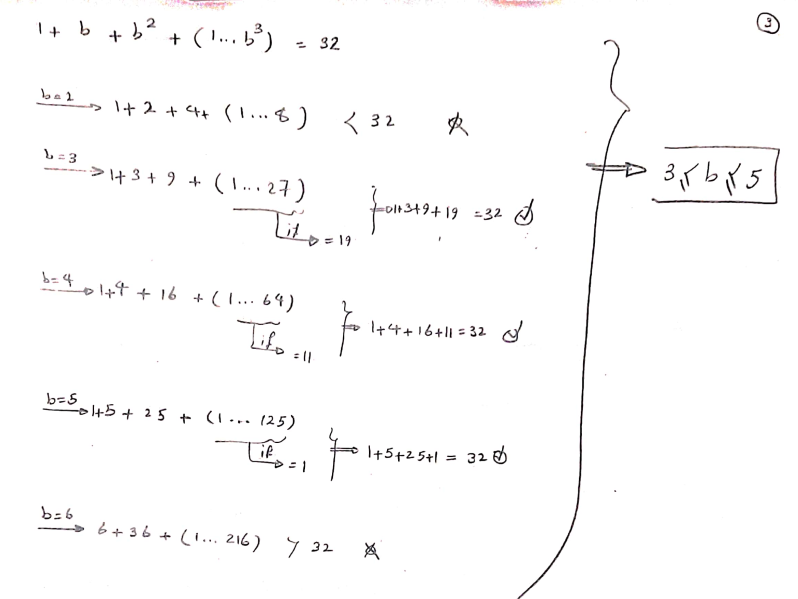 3
1 + b + b² + (1...b³) = 32
b=2 → 1+2+4+ (1...8) < 32
b=3 → 1+3+9+(1...27)
if → = 19
⇒ 1+3+9+19 = 32
b=4 → 1+4+16+(1...64)
if → = 11
⇒ 1+4+16+11 = 32
b=5 → 1+5+25+(1...125)
if → = 1
⇒ 1+5+25+1 = 32
b=6 → 6+36+(1...216) > 32
⇒ 3 ≤ b ≤ 5